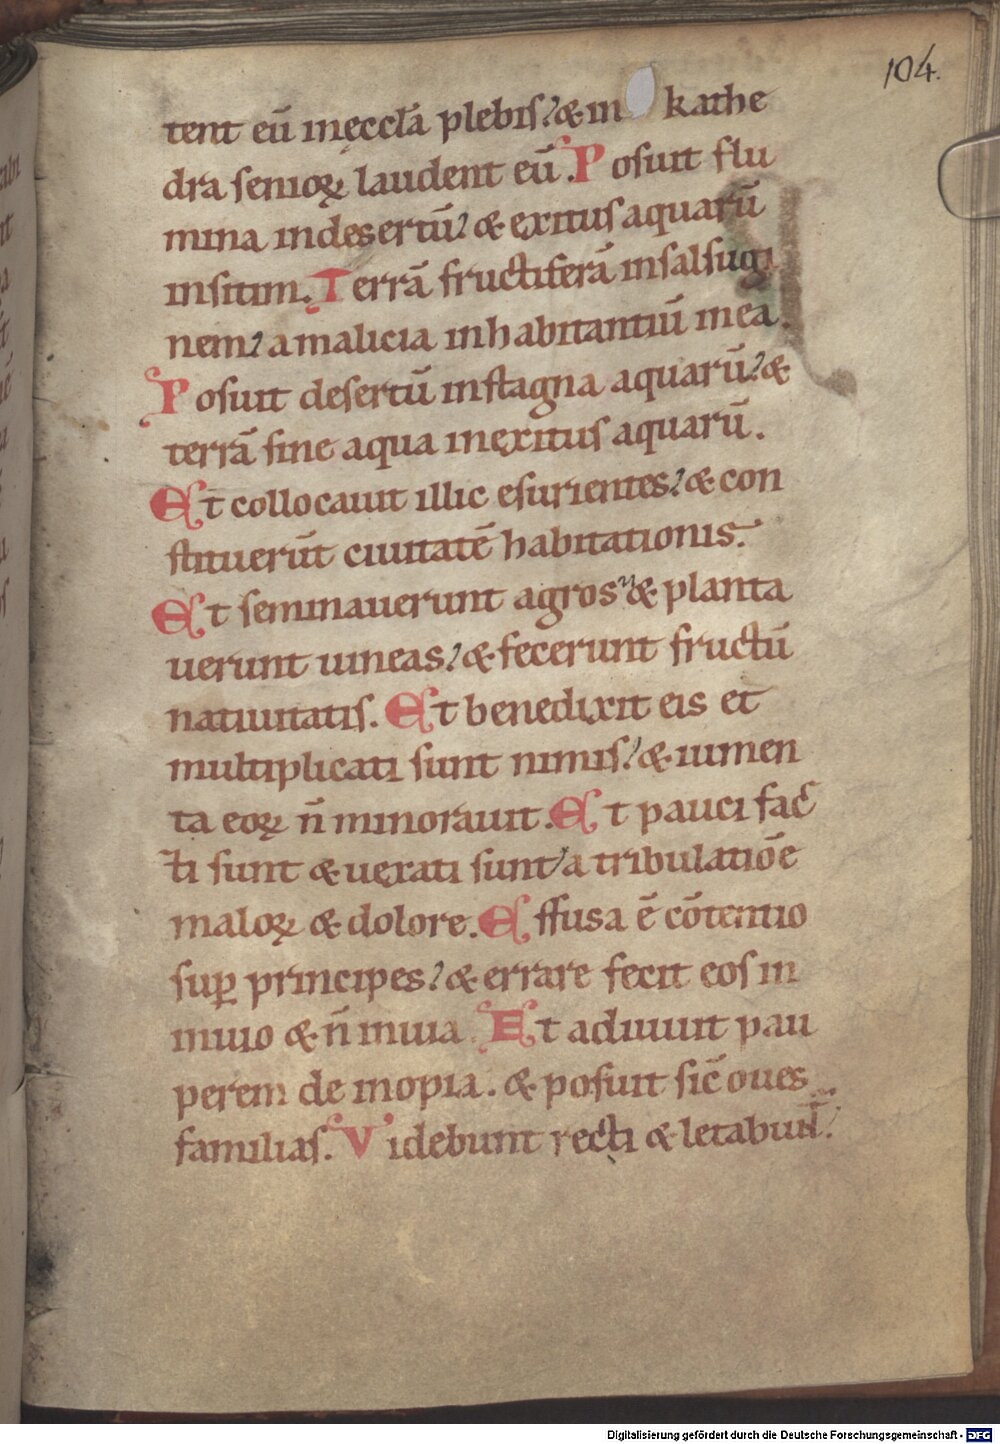 104.
tent eū in ęccła plebis? & in kathe
dra senioꝝ laudent eū. Posuit flu
mina in desertū? & exitus aquarū
in sitim. Terrā fructiferā in salsugi
nem? a malicia inhabitantiū in ea.
Posuit desertū in stagna aquarū? &
terrā sine aqua in exitus aquarū.
Et collocauit illic esurientes? & con
stituerūt ciuitatē habitationis.
Et seminauerunt agros & planta
uerunt uineas? & fecerunt fructū
natiuitatis. Et benedixit eis et
multiplicati sunt nimis? & iumen
ta eoꝝ n̄ minorauit. Et pauci fac
ti sunt & uexati sunt a tribulatiōe
maloꝝ & dolore. Effusa ē cōtentio
suꝑ principes? & errare fecit eos in
inuio & n̄ in uia. Et adiuuit pau
perem de inopia. & posuit sic̄ oues
familias. Videbunt recti & letabunt̄.
Digitalisierung gefördert durch die Deutsche Forschungsgemeinschaft - DFG